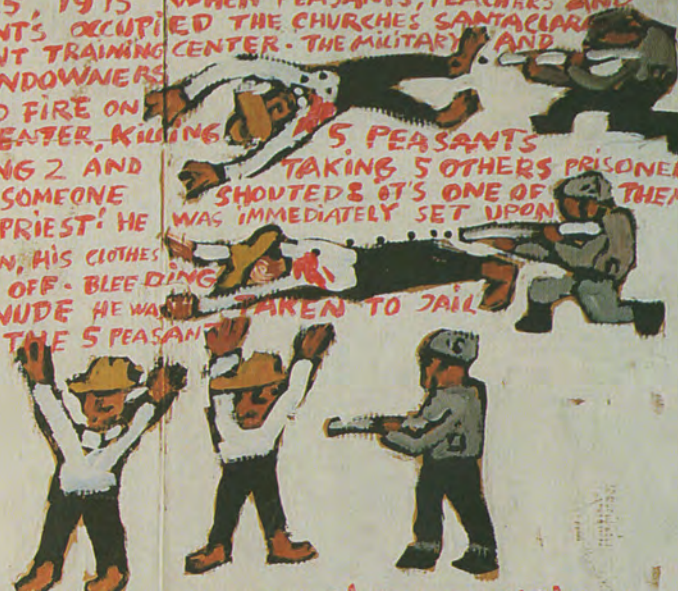 1975 WHEN PEASANTS, TEACHERS AND
OCCUPIED THE CHURCHES SANTACLARA
TRAINING CENTER. THE MILITARY AND
NDOWNERS
FIRE ON
ENTER, KILLING 5 PEASANTS
NG 2 AND TAKING 5 OTHERS PRISONE
SOMEONE SHOUTED: IT'S ONE OF THE
PRIEST! HE WAS IMMEDIATELY SET UPON
N, HIS CLOTHES
OFF. BLEEDING
NUDE HE WAS TAKEN TO JAIL
THE 5 PEASANT